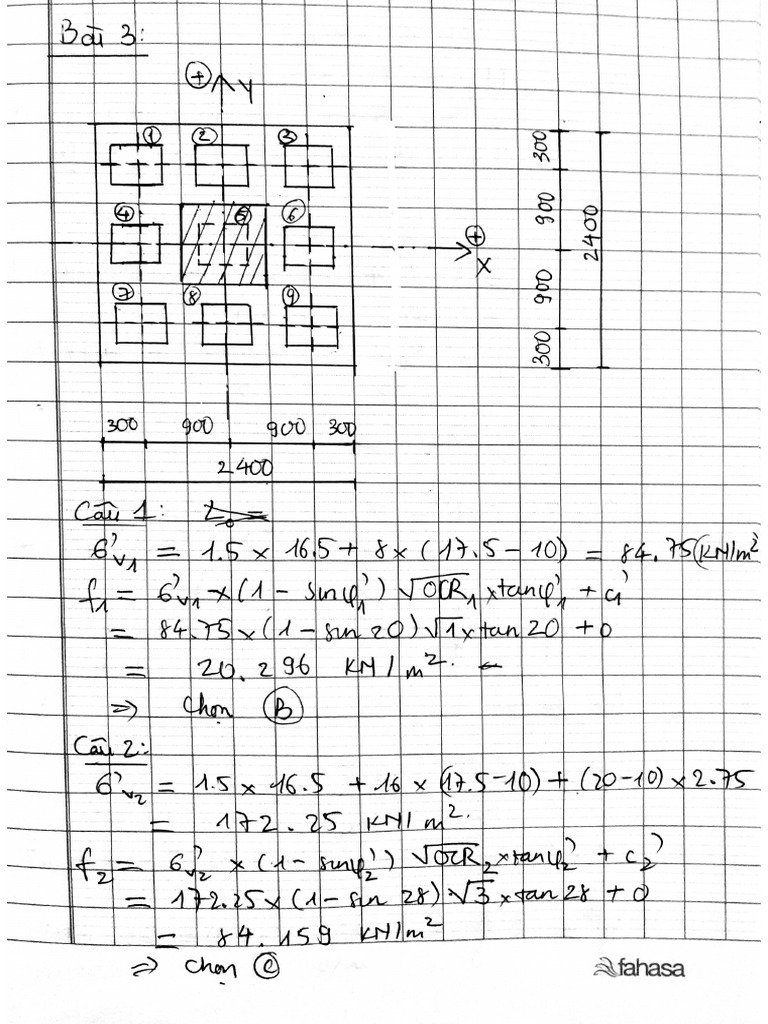 Bài 3:
+ Y
1 2 3
4 5 6
+ X
7 8 9
300
900
900
300
2400
300 900 900 300
2400
Câu 1:
б'v1 = 1.5 x 16.5 + 8 x (17.5 - 10) = 84.75 (KN/m²
f1 = б'v1 x (1 - sinφ'1) √OCR1 x tanφ'1 + c1'
= 84.75 x (1 - sin 20) √1 x tan 20 + 0
= 20.296 KN/m².
=> Chọn B
Câu 2:
б'v2 = 1.5 x 16.5 + 16 x (17.5 - 10) + (20 - 10) x 2.75
= 172.25 KN/m².
f2 = б'v2 x (1 - sinφ'2) √OCR2 x tanφ'2 + c2'
= 172.25 x (1 - sin 28) √3 x tan 28 + 0
= 84.159 KN/m²
=> chọn C
fahasa